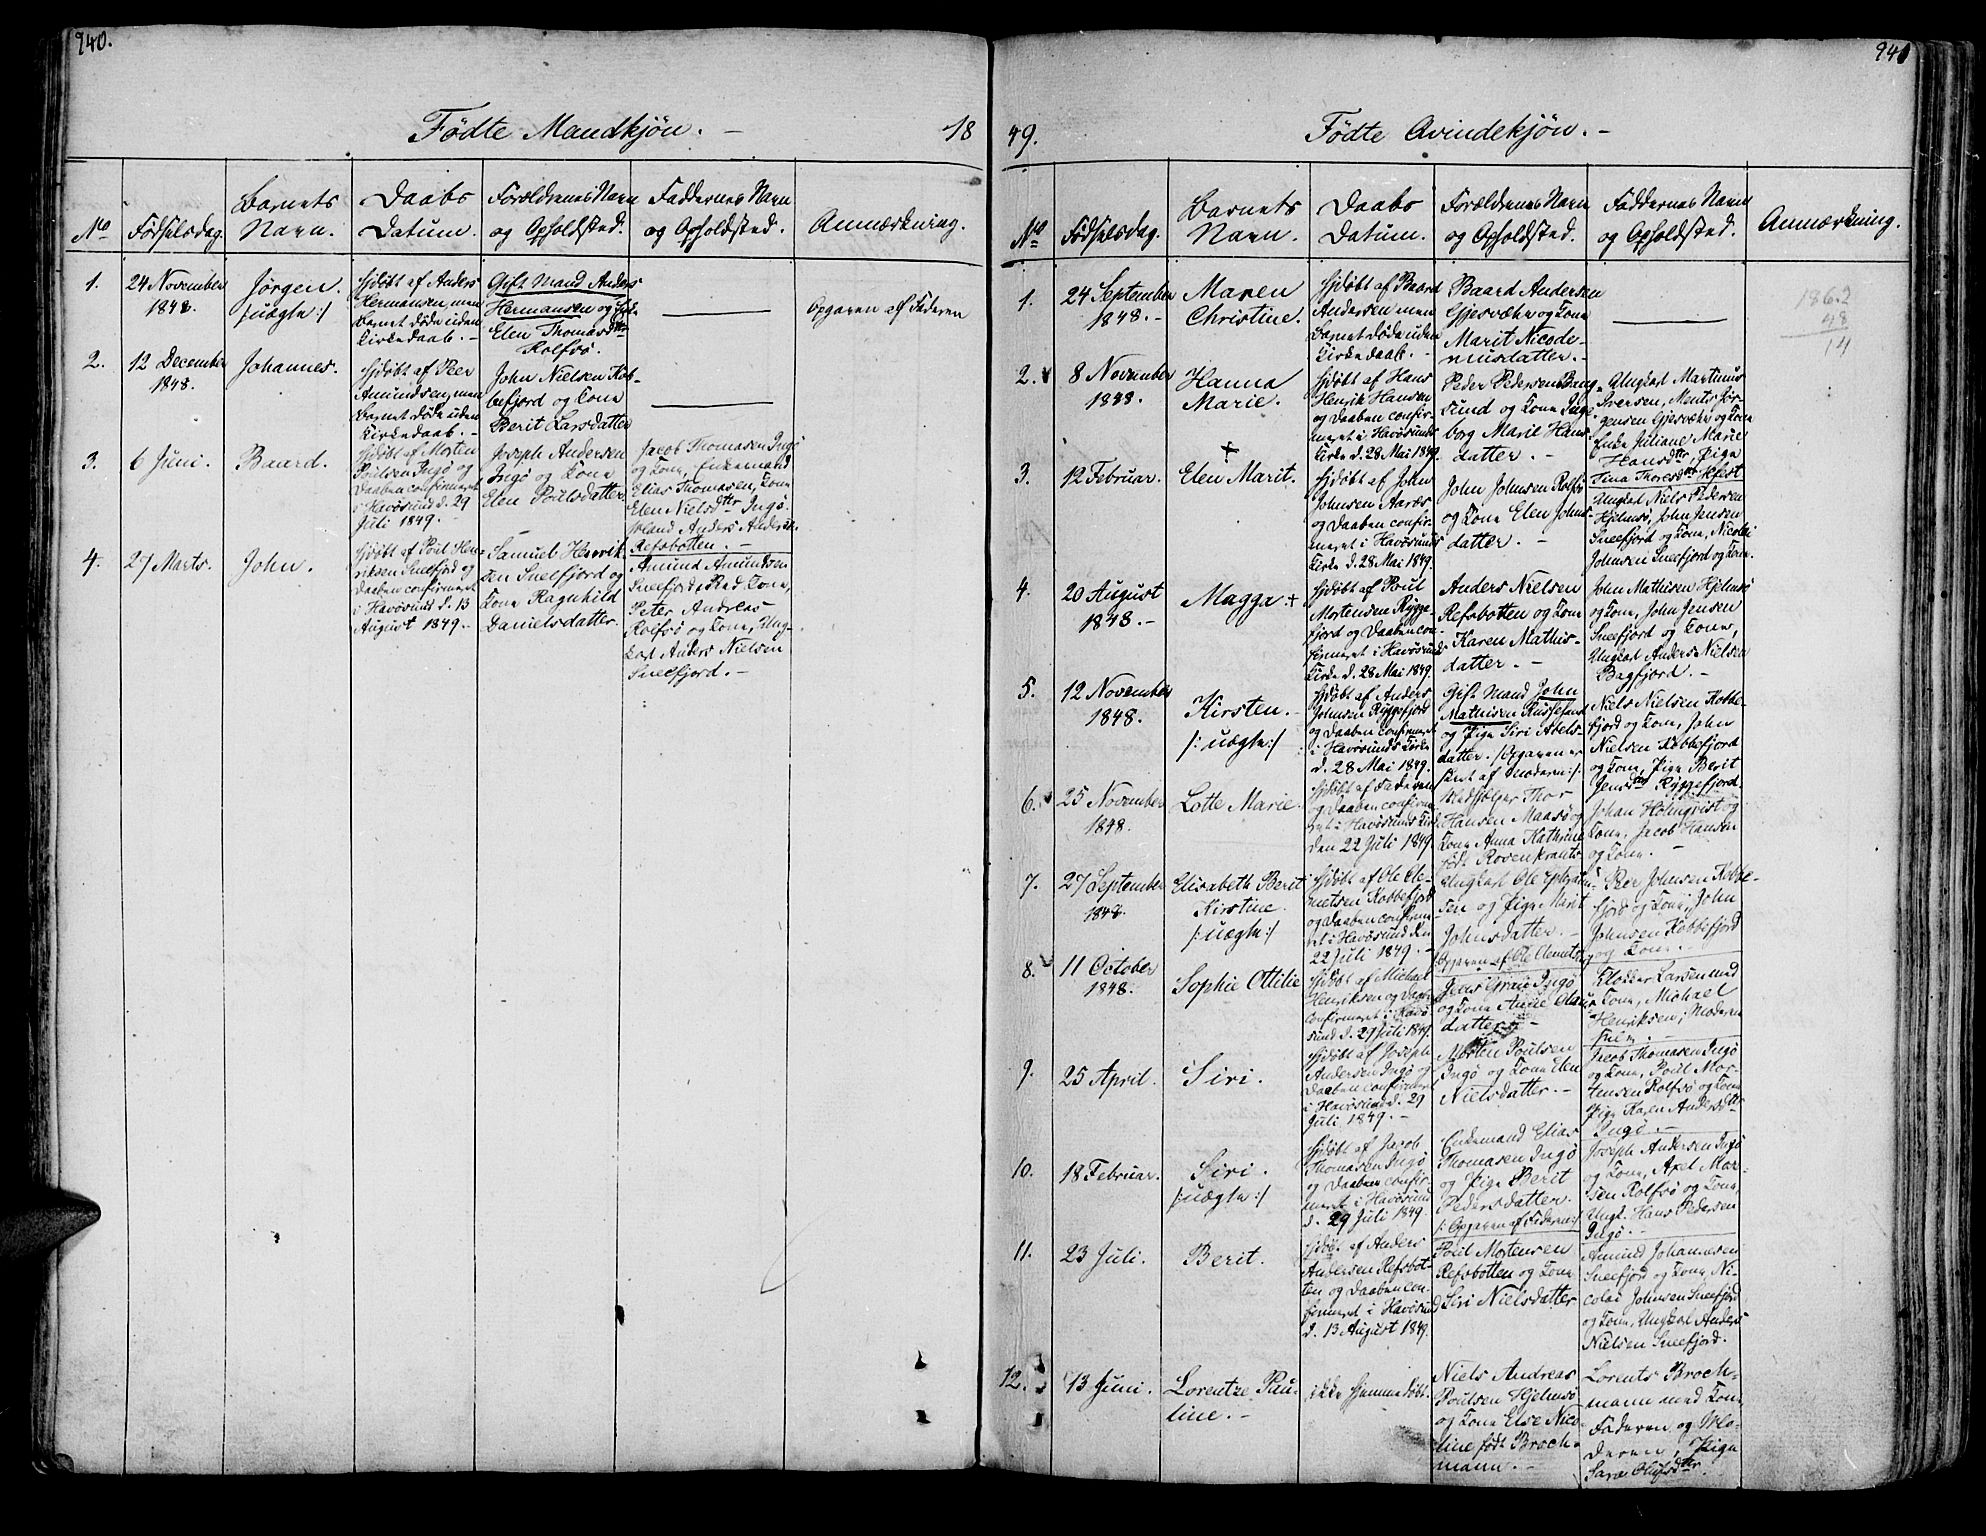 940.
Födte Mandkjön. —
18
No
Födselsdag.
Barnets
Navn.
Daabs
Datum.
Forældrenes Navn
og Opholdsted.
Faddernes Navn
og Opholdsted.
Anmærkning.
1.
24 November
1848.
Jörgen.
/:uægte:/
Hjdöbt af Anders
Hermansen, men
Barnet döde uden
Kirkedaab. —
Gift Mand Anders
Hermansen og
Elen Thomasdttr
Rolfsö.
Opgaven af Faderen
2.
12 December
1848.
Johannes.
Hjdöbt af Peer
Amundsen, men
Barnet döde uden
Kirkedaab. —
John Nielsen Kob-
befjord og Kone
Berit Larsdatter
3.
6 Juni.
Baard.
Hjdöbt af Morten
Poulsen Ingö og
Daaben confirmeret
i Havösund d. 29
Juli 1849. —
Joseph Andersen
Ingö og Kone
Elen Poulsdatter
Jacob Thomasen Ingö
og Kone, Enkemand
Elias Thomasen, Kone
Elen Nielsdttr Ingö.
Mand Anders Anders.
Refsbotten. —
4.
27 Marts.
John.
Hjdöbt af Poul Hen-
riksen Sneefjord og
Daaben confirmeret
i Havösund d. 13
August 1849. —
Samuel Henrik-
sen Sneefjord og
Kone Ragnhild
Danielsdatter.
Amund Amundsen
Sneefjord, Kone,
Peter Andreas
Rolfsö og Kone, Ung-
karl Anders Nielsen
Sneefjord. —
941
49.
Födte Qvindekjön. —
No
Födselsdag.
Barnets
Navn.
Daabs
Datum.
Forældrenes Navn
og Opholdsted.
Faddernes Navn
og Opholdsted.
Anmærkning.
1.
24 September
1848. —
Maren
Christine.
Hjdöbt af Baard
Andersen men
Barnet döde uden
Kirkedaab. —
Baard Andersen
Gjesvær og Kone
Marit Nicode-
musdatter. —
1862
48
14
2.
8 November
1848.
Hanna
Marie.
Hjdöbt af Hans
Henrik Hansen
og Daaben confir-
meret i Havösunds
Kirke d. 28 Mai 1849.
Peder Pedersen Bang-
sund og Kone Inge-
borg Marit Hans-
datter. —
Ungkarl Martinus
Sversen, Mentz Jör-
gensen Gjesvær og Kone
Enke Juliane Marie
Hansdttr, Pige
Tina Thoresdttr
3.
12 Februar.
+
Elen Marit.
Hjdöbt af John
Johnsen Aaræs
og Daaben confir-
meret i Havösunds
Kirke d. 28 Mai 1849.
John Johnsen Rolfsö
og Kone Elen Johns-
datter. —
Ungkarl Niels Pedersen
Hjelmsö, John Jensen
Sneefjord og Kone, Nicolai
Johnsen Sneefjord og Kone.
4.
20 August
1848. —
Magga +
Hjdöbt af Poul
Mortensen Rygge-
fjord og Daaben con-
firmeret i Havösunds
Kirke d. 28 Mai 1849.
Anders Nielsen
Refsbotten og Kone
Karen Mathis-
datter. —
John Mathisen Hjelmsö
og Kone, John Jensen
Sneefjord og Kone,
Ungkarl Anders Nielsen
Bagfjord. —
5.
12 November
1848.
Kirsten. —
/:uægte:/
Hjdöbt af Anders
Johnsen Ryggefjord
og Daaben confirmeret
i Havösunds Kirke
d. 28 Mai 1849.
Gift Mand John
Mathisen
og Pige Siri Abels-
datter. /:Opgaven er
skeet af Moderen:/.
Niels Nielsen Kobbe-
fjord og Kone, John
Nielsen Kobbefjord
og Kone, Pige Berit
Jensdttr Ryggefjord.
6.
25 November
1848.
Lotte Marie.
Hjdöbt af Faderen
og Daaben confirme-
ret i Havösunds Kirke
den 22 Juli 1849.
Thor
Hansen Maasö og
Kone Anna Kathrine
födt Rosenkrants
Johan Holmqvist og
Kone, Jacob Hansen
og Kone. —
7.
27 September
1848.
Elisabeth Berit
Kirstine.
/:uægte:/
Hjdöbt af Ole Cle-
metsen Kobbefjord
og Daaben confirme-
ret i Havösund den
22 Juli 1849. —
Ungkarl Ole
sen og Pige Marit
Johnsdatter. —
Opgaven af Ole Clemets.
Peer Johnsen Kobbe-
fjord og Kone, John
Johnsen Kobbefjord
og Kone. —
8.
11 October
1848.
Sophie Ottilie
Hjdöbt af Michael
Henriksen og Daaben
confirmeret i Havö-
sund d. 29 Juli 1849.
Jens Ingö
og Kone Anne
datter. —
Klokker Larsen med
Kone, Michael
Henriksen, Moderen
9.
25 April.
Siri.
Hjdöbt af Joseph
Andersen Ingö og
Daaben confirmeret
i Havösund d. 29
Juli 1849. —
Morten Poulsen
Ingö og Kone Elen
Nielsdatter. —
Jacob Thomasen Ingö
og Kone, Poul Mor-
tensen Rolfsö og Kone
Pige Karen Andersdttr
Ingö. —
10.
18 Februar.
Siri.
/:uægte:/
Hjdöbt af Jacob
Thomasen Ingö
og Daaben confir-
meret i Havösund
d. 29 Juli 1849.
Enkemand Elias
Thomasen Ingö
og Pige Berit
Pedersdatter.
/:Opgaven af Faderen:/.
Joseph Andersen Ingö
og Kone, Axel Mar-
sen Rolfsö og Kone,
Ungk. Hans Pedersen
Ingö. —
11.
23 Juli.
Berit.
Hjdöbt af Anders
Andersen Refsbot-
ten og Daaben con-
firmeret i Havösund
d. 13 August 1849.
Poul Mortensen
Refsbotten og Kone
Siri Nielsdatter
Amund Johannesen
Sneefjord og Kone, Ni-
colai Johnsen Sneefjord
og Kone, Ungkarl Anders
Nielsen Sneefjord.
12.
13 Juni.
Lorentze Pau-
line. —
ikke hjemmedöbt.
Niels Andreas
Poulsen Hjelmsö
og Kone Else Nico-
line födt Broch-
mann. —
Lorents Broch-
mann med Kone
Faderen og Mo-
deren, Pige
Sara Olufsdttr